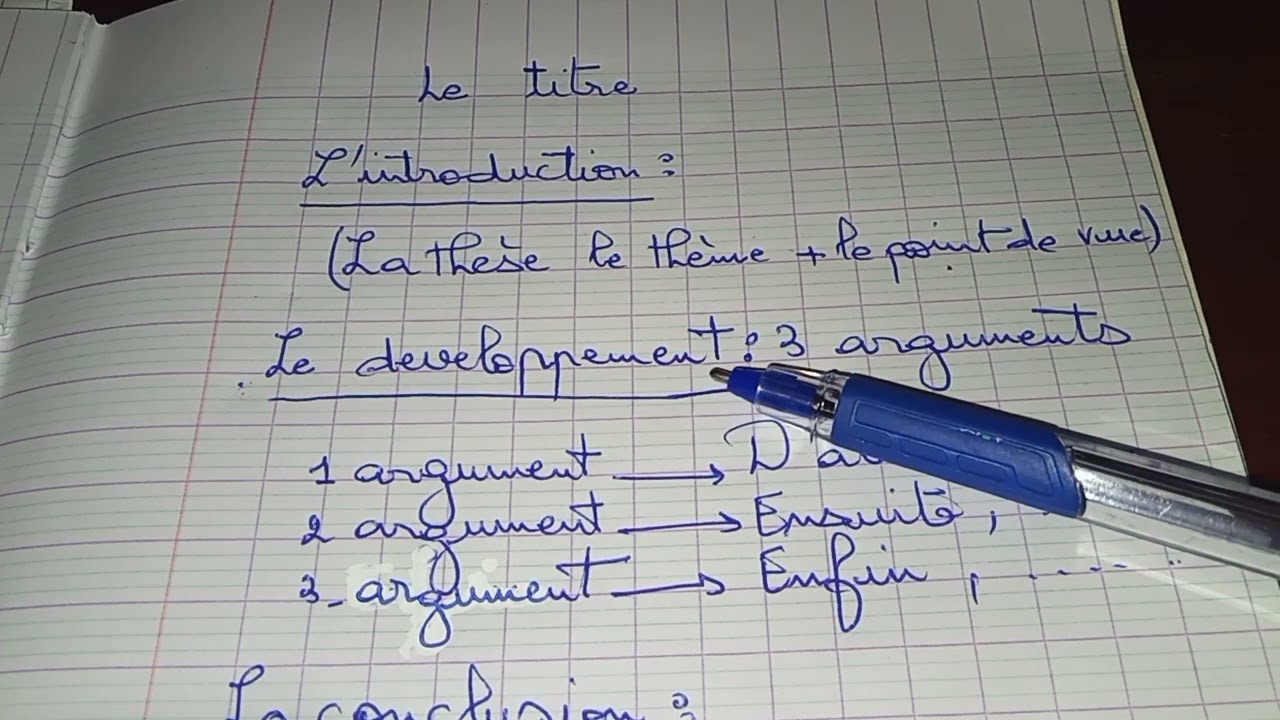 Le titre
L'introduction :
(La thèse le thème + le point de vue)
Le developpement : 3 arguments
1 argument → D'a
2 argument → Ensuite,
3_ argument → Enfin, ......
La conclusion :